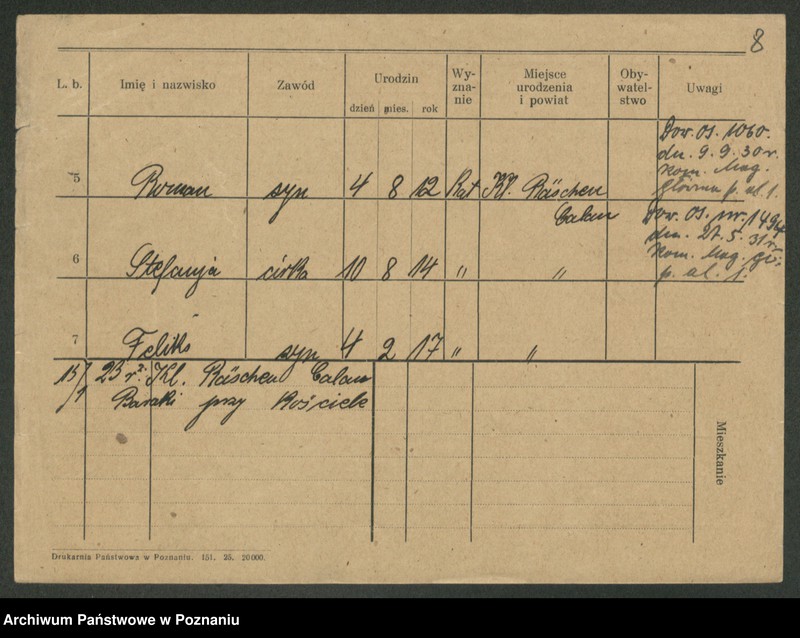 8
L. b. Imię i nazwisko Zawód Urodzin Wy-zna-nie Miejsce urodzenia i powiat Oby-watel-stwo Uwagi
dzień mies. rok
Dow. os. 1060.
dn. 9. 9. 30 r.
kom. Mag.
główna p. al. 1.
5 Roman syn 4 8 12 kat Kl. Räschen
Calau
Dow. os. nr. 1494
dn. 27. 5. 31 r.
kom. Mag. gł.
p. al. 1.
6 Stefanja córka 10 8 14 " "
7 Feliks syn 4 2 17 " "
15/1 23 r. Kl. Räschen Calau
Baraki przy Kościele
Mieszkanie
Drukarnia Państwowa w Poznaniu. 151. 25. 20000.
Archiwum Państwowe w Poznaniu